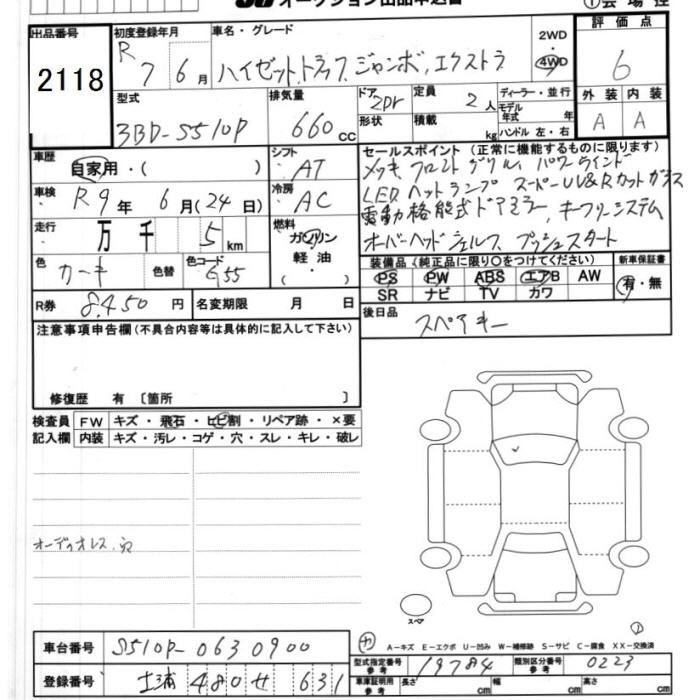 オークション出品申込書
出品番号 2118
初度登録年月 R 7 6月
車名・グレード ハイゼットトラック ジャンボ エクストラ
2WD・4WD
評価点 6
型式 3BD-S510P
排気量 660cc
ドア 2Dr
形状
定員 2人
積載 kg
ディーラー・並行
モデル年式 年
ハンドル 左・右
外装 A 内装 A
車歴 自家用・( )
シフト AT
車検 R9年 6月(24日)
冷房 AC
走行 万 千 5km
燃料 ガソリン・軽油・( )
色 カーキ 色替 色コード G55
R券 8,450円 名変期限 月 日
セールスポイント(正常に機能するものに限ります)
メッキフロントグリル パワーウインド
LEDヘットランプ スーパーUV&Rカットガラス
電動格納式ドアミラー、キーフリーシステム
オーバーヘッドシェルフ プッシュスタート
装備品(純正品に限り○をつけてください)
PS PW ABS エアB AW
SR ナビ TV カワ
新車保証書 有・無
後日品 スペアキー
注意事項申告欄(不具合内容等は具体的に記入して下さい)
修復歴 有 〔箇所 〕
検査員記入欄
FW キズ・飛石・ヒビ割・リペア跡・×要
内装 キズ・汚レ・コゲ・穴・スレ・キレ・破レ
オーディオレス
スペア
A-キズ E-エクボ U-凹み W-補修跡 S-サビ C-腐食 XX-交換済
車台番号 S510P-0630900
登録番号 土浦 480 せ 631
型式指定番号 参考 19784
類別区分番号 参考 0223
車庫証明用 参考 長さ cm 幅 cm 高さ cm